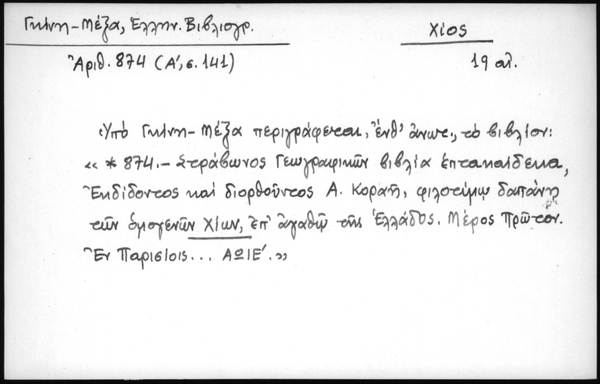 Γκίνη-Μέξα, Ἑλλην. Βιβλιογρ.
Χίος
Ἀριθ. 874 (Α', σ. 141)
19 αἰ.
Ὑπὸ Γκίνη-Μέξα περιγράφεται, ἔνθ' ἄνωτ., τὸ βιβλίον:
«*874.- Στράβωνος Γεωγραφικῶν βιβλία ἑπτακαίδεκα,
Ἐκδίδοντος καὶ διορθοῦντος Α. Κοραῆ, φιλοτίμῳ δαπάνῃ
τῶν ὁμογενῶν Χίων, ἐπ' ἀγαθῷ τῆς Ἑλλάδος. Μέρος Πρῶτον.
Ἐν Παρισίοις... ΑΩΙΕ'.»